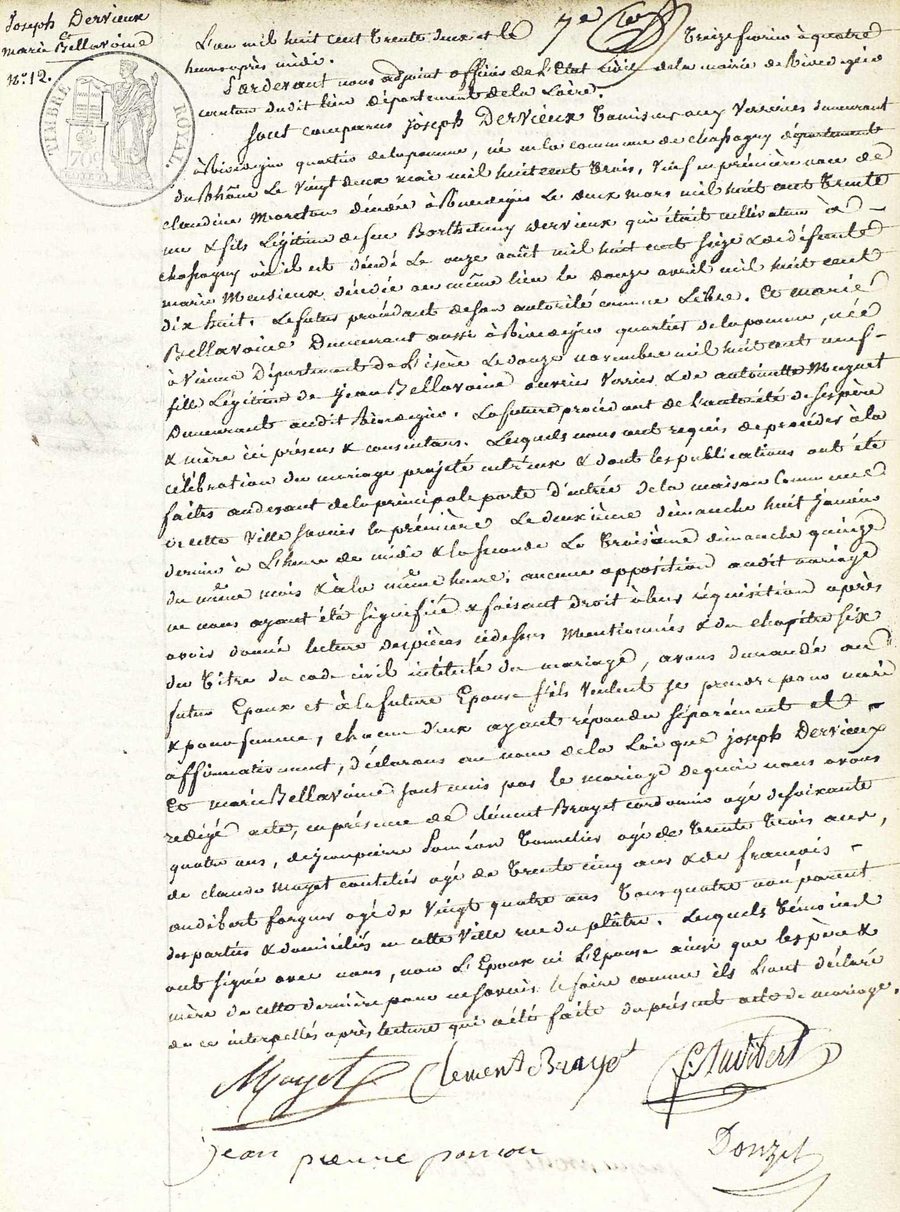 Joseph Dervieux
et
marie Bellavoine
n°. 12.
TIMBRE ROYAL.
7e
L'an mil huit cent trente deux et le treize fevrier à quatre
heures après midi.
Pardevant nous adjoint officier de l'Etat civil de la mairie de Rivedegier
canton dudit lieu département de la Loire.
Sont comparus joseph Dervieux tamiseur aux verreries demeurant
à Rivedegier quartier de la pomme, né en la commune de chassagny département
du Rhône le vingt deux mai mil huit cent trois, veuf en première noce de
claudine Moreton décédée à Rivedegier le deux mars mil huit cent trente
un & fils légitime de feu Barthelemy Dervieux qui était cultivateur à
chassagny où il est décédé le onze août mil huit cent seize & de défunte
marie Mensieux décédée au même lieu le douze avril mil huit cent
dix huit. Le futur procédant de son autorité comme libre. Et marie
Bellavoine demeurant aussi à Rivedegier quartier de la pomme, née
à Vienne département de L'isère le douze novembre mil huit cent neuf
fille légitime de Jean Bellavoine ouvrier verrier & de antoinette Muguet
demeurant audit Rivedegier. La future procédant de l'autorité de ses père
& mère ici présens & consentans. Lesquels nous ont requis de procéder à la
célébration du mariage projeté entr'eux & dont les publications ont été
faites au devant de la principale porte d'entrée de la maison Commune
de cette ville savoir la première le deuxième dimanche huit janvier
dernier à l'heure de midi & la seconde le troisième dimanche quinze
du même mois & à la même heure; aucune opposition audit mariage
ne nous ayant été signifiée & faisant droit à leur réquisition après
avoir donné lecture des pièces cidessus mentionnées & du chapitre six
du titre du code civil intitulé du mariage, avons demandé au
futur Epoux et à la future Epouse s'ils veulent se prendre pour mari
& pour femme, chacun d'eux ayant répondu séparément et
affirmativement, déclarons au nom de la Loi que joseph Dervieux
Et marie Bellavoine sont unis par le mariage de quoi nous avons
redigé acte, en présence de clément Brayet cordonnier agé de soixante
quatre ans, de jeanpierre Ponson tonnelier agé de trente trois ans,
de claude Mayet coutelier agé de trente cinq ans & de francois
audibert forgeur agé de vingt quatre ans tous quatre non parent
des parties & domiciliés en cette ville rue du plâtre. Lesquels témoins
ont signé avec nous, non L'Epoux ni L'Epouse ainsi que les père &
mère de cette dernière pour ne savoir le faire comme ils l'ont déclaré
de ce interpellés après lecture qui a été faite du présent acte de mariage.
Mayet Clement Brayet f. Audibert
jean pierre ponson Donzel